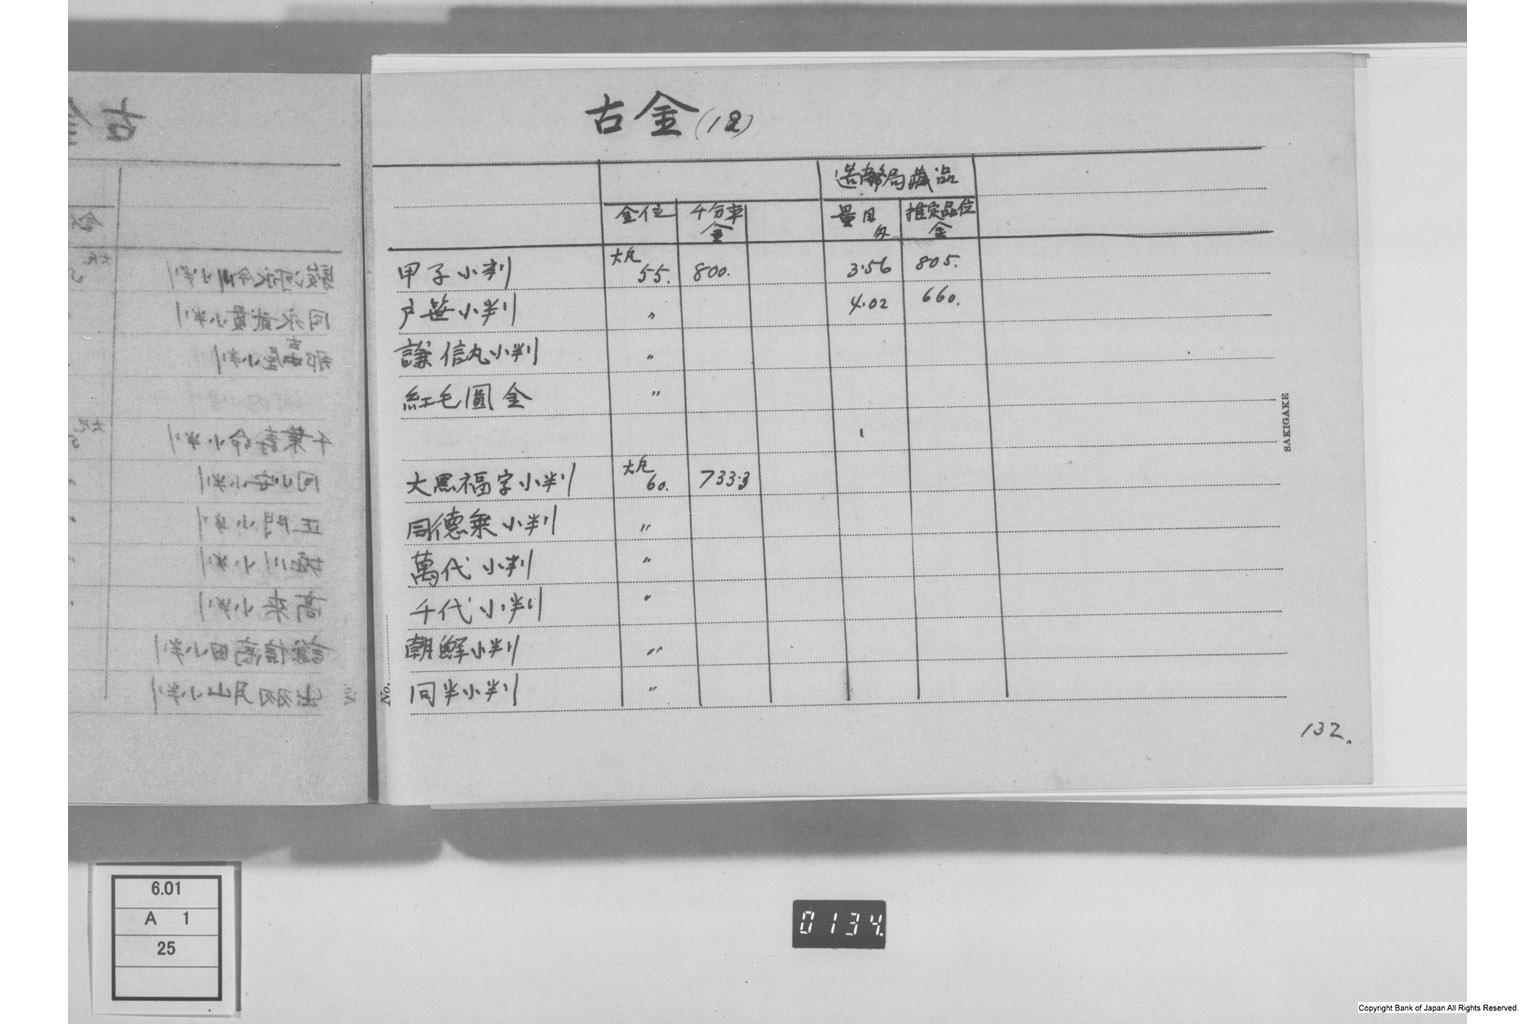 古金(12)
造幣局蔵品
金位 千分率 金 量目 匁 推定品位 金
甲子小判 大凡 55. 800. 3.56 805.
戸笹小判 〃 4.02 660.
謙信丸小判 〃
紅毛圓金 〃
大黒福字小判 大凡 60. 733.3
同徳乗小判 〃
萬代小判 〃
千代小判 〃
朝鮮小判 〃
同半小判 〃
No.
SAKIGAKE
132.
6.01
A 1
25
0134.
Copyright Bank of Japan All Rights Reserved.